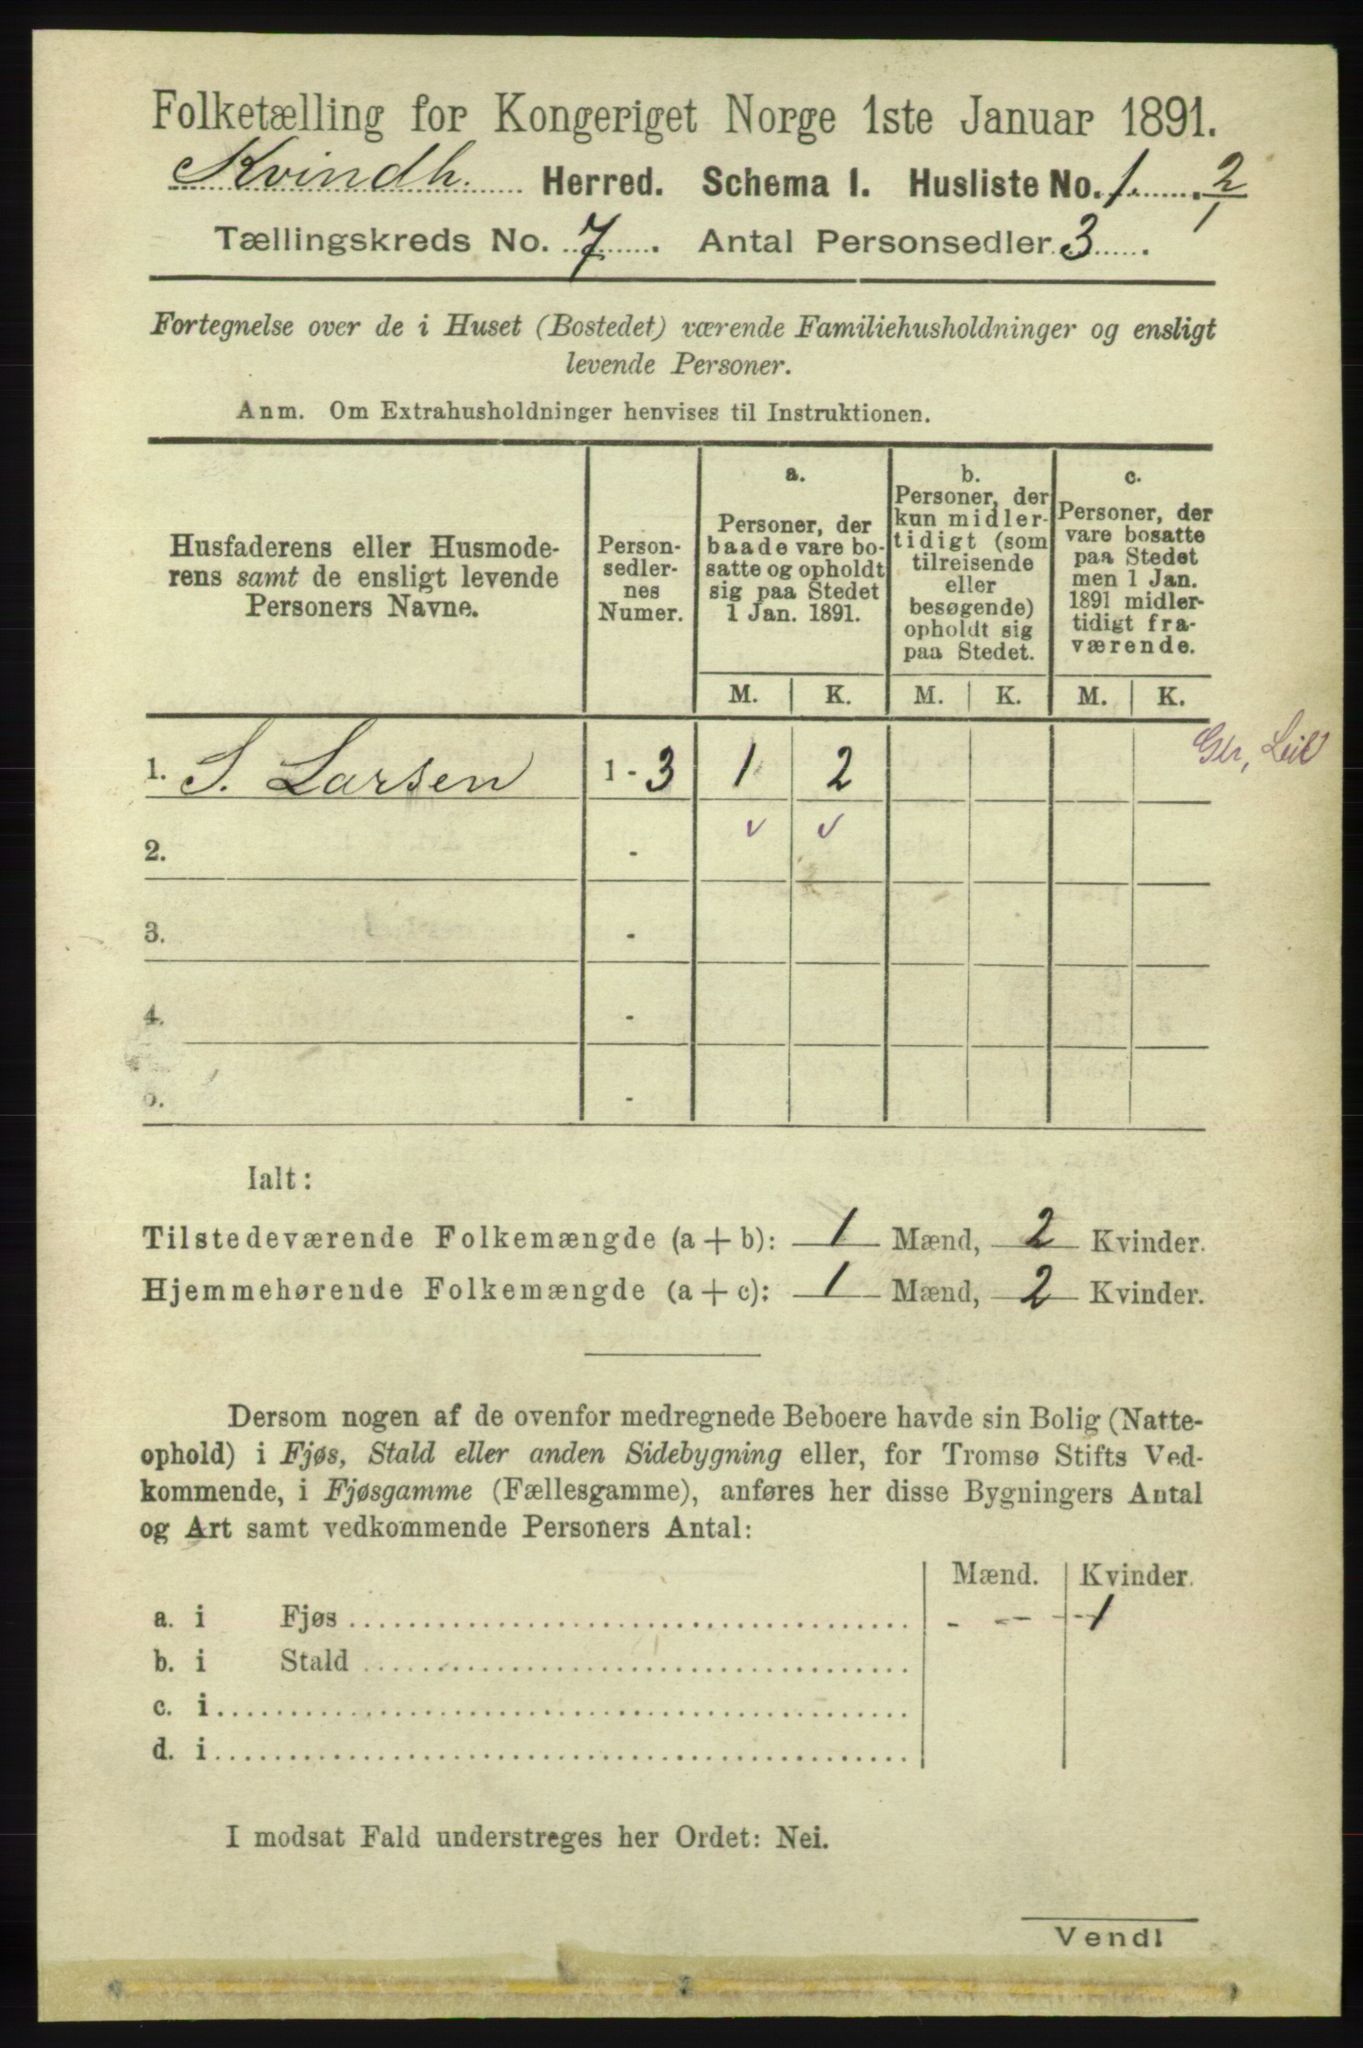 Folketælling for Kongeriget Norge 1ste Januar 1891.
Kvindh. Herred. Schema I. Husliste No. 1. 2/1
Tællingskreds No. 7. Antal Personsedler 3.
Fortegnelse over de i Huset (Bostedet) værende Familiehusholdninger og ensligt
levende Personer.
Anm. Om Extrahusholdninger henvises til Instruktionen.
Husfaderens eller Husmode-
rens samt de ensligt levende
Personers Navne.
Person-
sedler-
nes
Numer.
a.
Personer, der
baade vare bo-
satte og opholdt
sig paa Stedet
1 Jan. 1891.
b.
Personer, der
kun midler-
tidigt (som
tilreisende
eller
besøgende)
opholdt sig
paa Stedet.
c.
Personer, der
vare bosatte
paa Stedet
men 1 Jan.
1891 midler-
tidigt fra-
værende.
M. K. M. K. M. K.
1. S. Larsen 1 - 3 1 2
✓ ✓
2. -
3. -
4. -
5. -
Ialt:
Tilstedeværende Folkemængde (a + b): 1 Mænd, 2 Kvinder.
Hjemmehørende Folkemængde (a + c): 1 Mænd, 2 Kvinder.
Dersom nogen af de ovenfor medregnede Beboere havde sin Bolig (Natte-
ophold) i Fjøs, Stald eller anden Sidebygning eller, for Tromsø Stifts Ved-
kommende, i Fjøsgamme (Fællesgamme), anføres her disse Bygningers Antal
og Art samt vedkommende Personers Antal:
Mænd. Kvinder.
a. i Fjøs - -- -- 1
b. i Stald
c. i
d. i
I modsat Fald understreges her Ordet: Nei.
Vend!